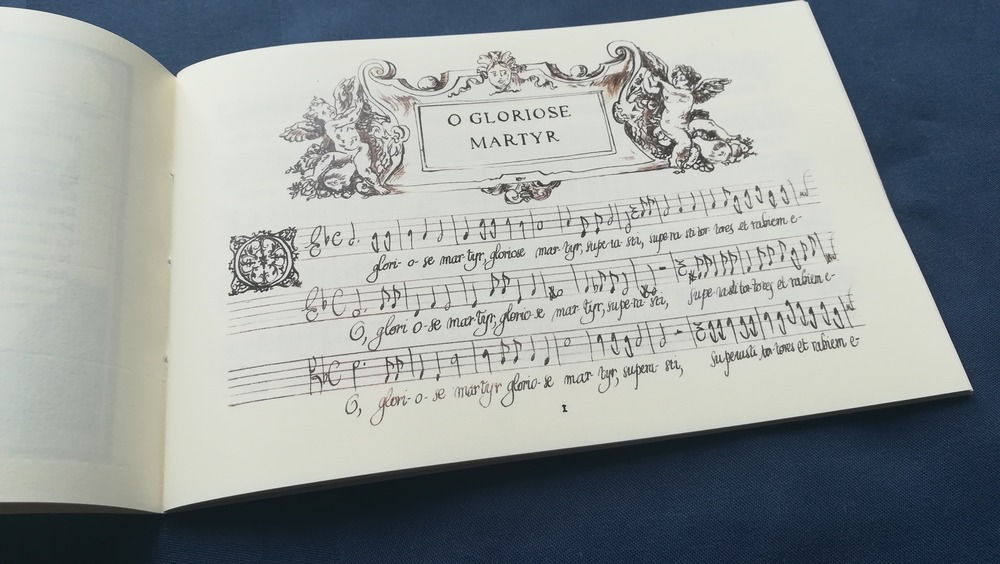 O GLORIOSE
MARTYR
O
glori- o- se mar-tyr, gloriose mar-tyr, supe-ra-sti, supe-ra sti tor tores et rabiem e-
O, glori o-se mar-tyr, glorio-se mar-tyr, supe-ra-sti, supe-rasti tor-tores et rabiem e-
O, glori- o- se martyr glorio-se mar-tyr, supera-sti, superasti tor-tores et rabiem e-
1